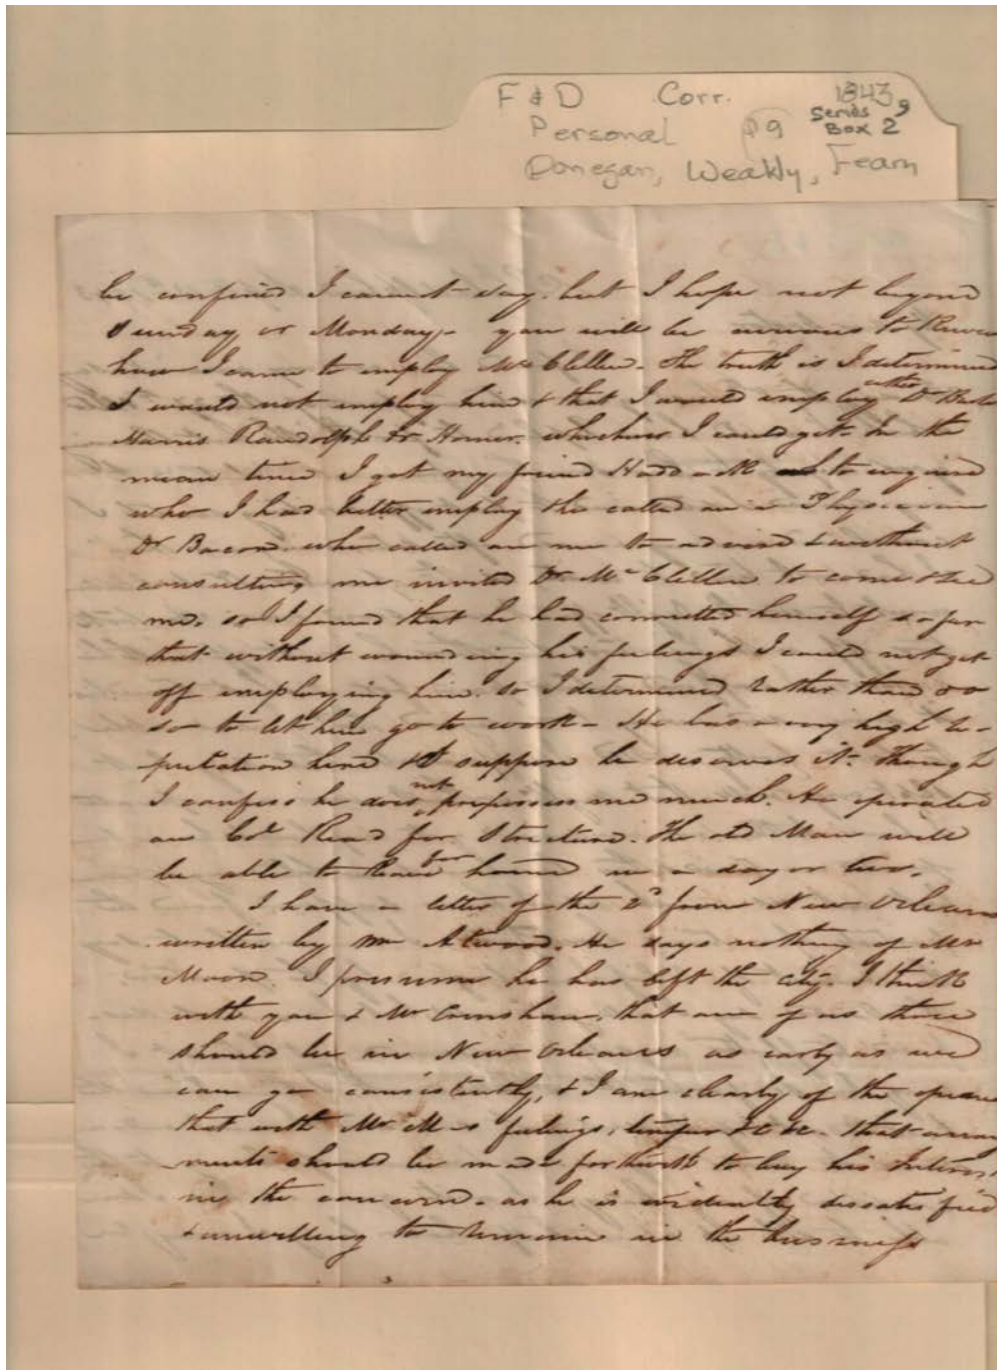 F & D Corr. 1843
Personal P9 Series 9
Box 2
Donegan, Weakly, Fearn
be confined I cannot say. but I hope not beyond
Sunday or Monday - you will be curious to know
how I came to employ McClellan. The truth is I determined
I would not employ him & that I would employ either Dr
Harris Randolph or Horner. whichever I could get. In the
mean time I got my friend to enquire
who I had better employ & he called in a Physician
Dr Bacon. who called on me to advise & without
consulting me invited Dr McClellan to come & see
me. so I found that he had committed himself so far
that without wounding his feelings I could not get
off employing him. so I determined rather than do
so to let him go to work - He has a very high re-
putation here & I suppose he deserves it. though
I confess he does not prepossess me much. He operated
on Col Read for Stricture. The old Man will
be able to leave for home in a day or two.
I have a letter of the 2d from New Orleans
written by Mr Atwood. He says nothing of Mr
Moon. I presume he has left the city. I think
with you & Mr Crenshaw. that one of us three
should be in New Orleans as early as we
can go consistently, & I am clearly of the opinion
that with Mr M-s feelings, temper &c &c - that arrange
ments should be made forthwith to buy his Interest
in the concern. as he is evidently dissatisfied
& unwilling to remain in the business